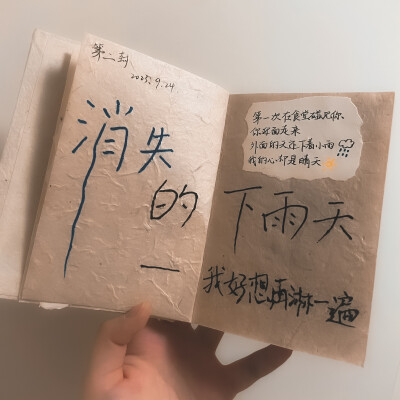 第二封
2025.9.24
消失
的
一
第一次在食堂碰见你
你对面走来
外面的天在下着小雨
我的心却是晴天
下雨天
我好想再淋一遍